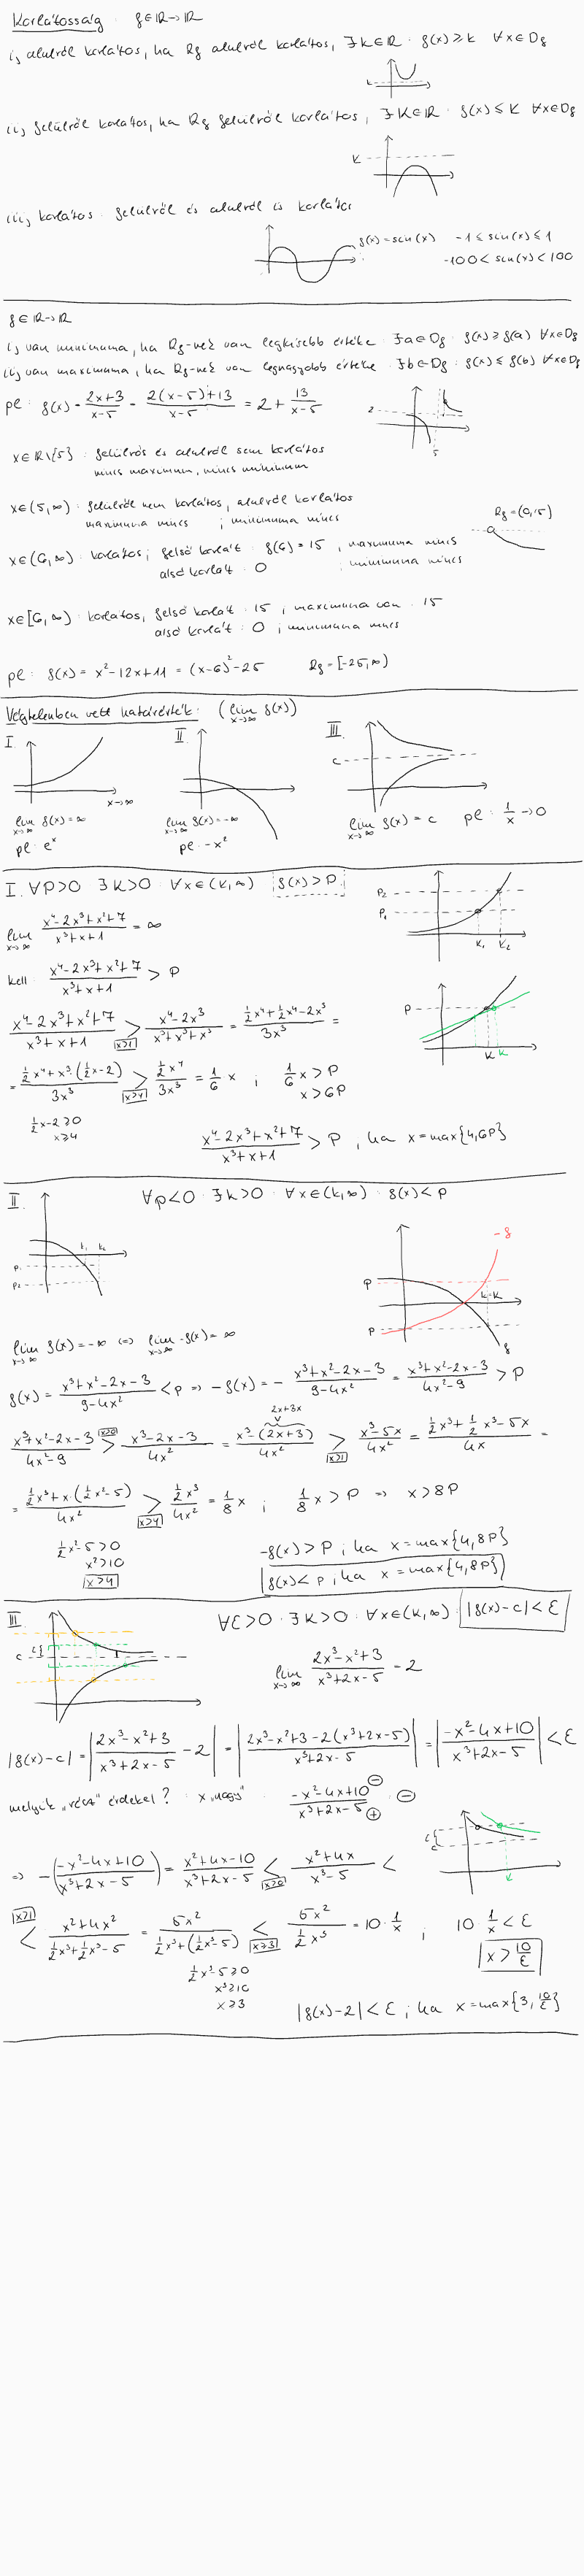 Korlátosság : f∈ℝ→ℝ
i, alulról korlátos, ha Rf alulról korlátos, ∃k∈ℝ : f(x) ≥ k ∀x∈Df
k
ii, felülről korlátos, ha Rf felülről korlátos, ∃K∈ℝ : f(x) ≤ K ∀x∈Df
K
iii, korlátos : felülről és alulról is korlátos
f(x) = sin(x) -1 ≤ sin(x) ≤ 1
-100 < sin(x) < 100
f∈ℝ→ℝ
i, van minimuma, ha Rf-nek van legkisebb értéke : ∃a∈Df : f(x) ≥ f(a) ∀x∈Df
ii, van maximuma, ha Rf-nek van legnagyobb értéke : ∃b∈Df : f(x) ≤ f(b) ∀x∈Df
pl: f(x) = (2x+3)/(x-5) = (2(x-5)+13)/(x-5) = 2 + 13/(x-5)
2
5
x∈ℝ\{5} : felülről és alulról sem korlátos
nincs maximum, nincs minimum
x∈(5,∞) : felülről nem korlátos, alulról korlátos
maximuma nincs ; minimuma nincs
Rf = (0,15)
x∈(6,∞) : korlátos ; felső korlát : f(6) = 15 , maximuma nincs
alsó korlát : 0 ; minimuma nincs
x∈[6,∞) : korlátos, felső korlát : 15 ; maximuma van : 15
alsó korlát : 0 ; minimuma nincs
pl: f(x) = x²-12x+11 = (x-6)²-25 Rf = [-25,∞)
Végtelenben vett határérték: (lim x→∞ f(x))
I. II. III.
c
x→∞
lim x→∞ f(x) = ∞ lim x→∞ f(x) = -∞ lim x→∞ f(x) = c pl: 1/x → 0
pl: eˣ pl: -x²
I. ∀P>0 ∃K>0 : ∀x∈(K,∞) : f(x) > P
P₂
P₁
K₁ K₂
lim x→∞ (x⁴-2x³+x²+7)/(x³+x+1) = ∞
kell : (x⁴-2x³+x²+7)/(x³+x+1) > P
P
K K
(x⁴-2x³+x²+7)/(x³+x+1) > [x≥1] (x⁴-2x³)/(x³+x³+x³) = (½x⁴+½x⁴-2x³)/(3x³) =
= (½x⁴+x³·(½x-2))/(3x³) > [x≥4] (½x⁴)/(3x³) = 1/6 x ; 1/6 x > P
x > 6P
½x-2 ≥ 0
x ≥ 4
(x⁴-2x³+x²+7)/(x³+x+1) > P , ha x = max{4,6P}
II. ∀p<0 : ∃k>0 : ∀x∈(k,∞) : f(x) < p
k₁ k₂
p₁
p₂
-f
P
k=K
p
f
lim x→∞ f(x) = -∞ ⇔ lim x→∞ -f(x) = ∞
f(x) = (x³+x²-2x-3)/(9-4x²) < p ⇒ -f(x) = - (x³+x²-2x-3)/(9-4x²) = (x³+x²-2x-3)/(4x²-9) > P
2x+3x
(x³+x²-2x-3)/(4x²-9) > [x≥0] (x³-2x-3)/(4x²) = (x³-(2x+3))/(4x²) > [x≥1] (x³-5x)/(4x²) = (½x³+½x³-5x)/(4x) =
= (½x³+x·(½x²-5))/(4x²) > [x≥4] (½x³)/(4x²) = 1/8 x ; 1/8 x > P ⇒ x > 8P
½x²-5 > 0
x² > 10
x ≥ 4
-f(x) > P ; ha x = max{4,8P}
f(x) < p ; ha x = max{4,8P}
III. ∀ε>0 : ∃K>0 : ∀x∈(K,∞) : |f(x)-c| < ε
c
lim x→∞ (2x³-x²+3)/(x³+2x-5) = 2
|f(x)-c| = |(2x³-x²+3)/(x³+2x-5) - 2| = |(2x³-x²+3-2(x³+2x-5))/(x³+2x-5)| = |(-x²-4x+10)/(x³+2x-5)| < ε
melyik „rész" érdekel? : x „nagy" : (-x²-4x+10 ⊖)/(x³+2x-5 ⊕) : ⊖
c
K
⇒ -((-x²-4x+10)/(x³+2x-5)) = (x²+4x-10)/(x³+2x-5) < [x≥0] (x²+4x)/(x³-5) <
< [x≥1] (x²+4x²)/(½x³+½x³-5) = (5x²)/(½x³+(½x³-5)) < [x≥3] (5x²)/(½x³) = 10·1/x ; 10·1/x < ε
x > 10/ε
½x³-5 ≥ 0
x³ ≥ 10
x ≥ 3
|f(x)-2| < ε ; ha x = max{3, 10/ε}